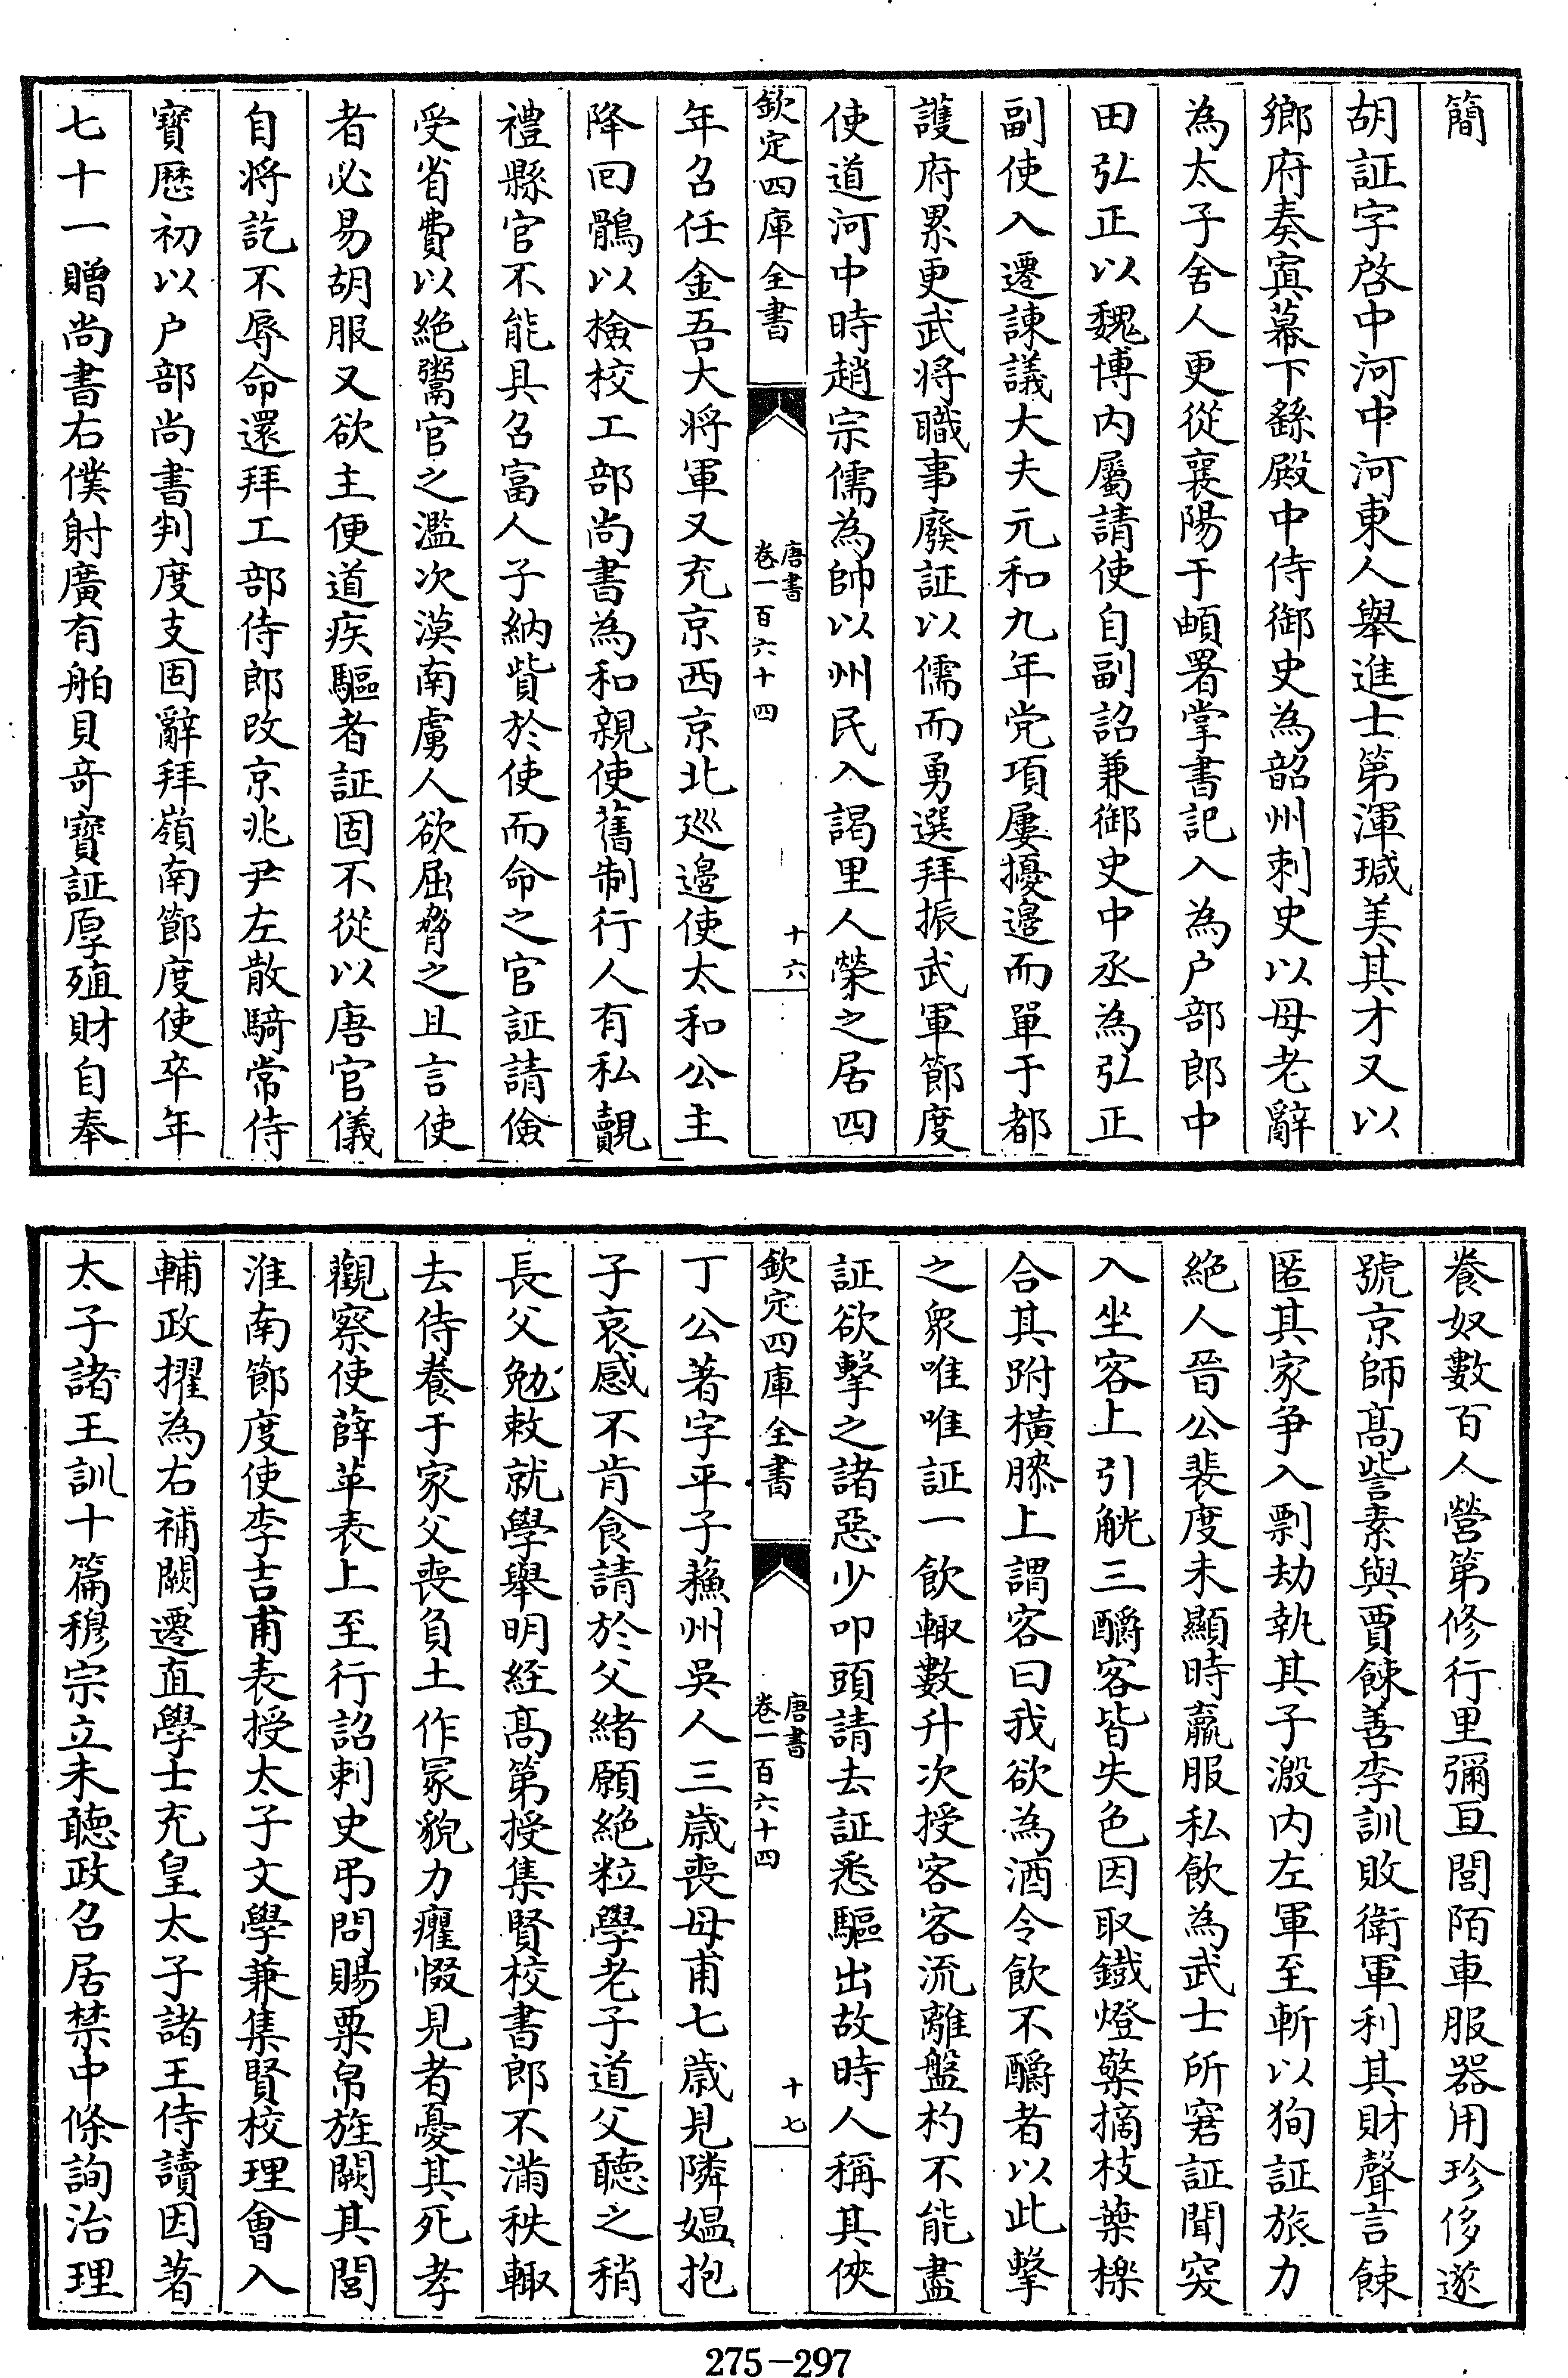 簡
胡証字啓中河中河東人舉進士第渾瑊美其才又以
鄉府奏寘幕下繇殿中侍御史為韶州刺史以母老辭
為太子舍人更從襄陽于頔署掌書記入為户部郎中
田弘正以魏博内屬請使自副詔兼御史中丞為弘正
副使入遷諫議大夫元和九年党項屢擾邊而單于都
護府累更武將職事廢証以儒而勇選拜振武軍節度
使道河中時趙宗儒為帥以州民入謁里人榮之居四
欽定四庫全書
唐書
卷一百六十四
十六
年召任金吾大將軍又充京西京北巡邊使太和公主
降回鶻以檢校工部尚書為和親使舊制行人有私覿
禮縣官不能具召富人子納貲於使而命之官証請儉
受省費以絶鬻官之濫次漠南虜人欲屈脅之且言使
者必易胡服又欲主便道疾驅者証固不從以唐官儀
自將訖不辱命還拜工部侍郎改京兆尹左散騎常侍
寶歴初以户部尚書判度支固辭拜嶺南節度使卒年
七十一贈尚書右僕射廣有舶貝奇寶証厚殖財自奉
養奴數百人營第修行里彌亘閭陌車服器用珍侈遂
號京師高訾素與賈餗善李訓敗衛軍利其財聲言餗
匿其家争入剽劫執其子溵内左軍至斬以狥証旅力
絶人晉公裴度未顯時羸服私飲為武士所窘証聞突
入坐客上引觥三釂客皆失色因取鐵燈檠摘枝葉櫟
合其跗横膝上謂客曰我欲為酒令飲不釂者以此擊
之衆唯唯証一飲輙數升次授客客流離盤杓不能盡
証欲擊之諸惡少叩頭請去証悉驅出故時人稱其俠
欽定四庫全書
唐書
卷一百六十四
十七
丁公著字平子蘇州吳人三歲喪母甫七歲見隣媪抱
子哀感不肯食請於父緒願絶粒學老子道父聽之稍
長父勉敕就學舉明經高第授集賢校書郎不滿秩輙
去侍養于家父喪負土作冢貌力癯惙見者憂其死孝
觀察使薛苹表上至行詔刺史弔問賜粟帛旌闕其閭
淮南節度使李吉甫表授太子文學兼集賢校理會入
輔政擢為右補闕遷直學士充皇太子諸王侍讀因著
太子諸王訓十篇穆宗立未聽政召居禁中條詢治理
275-297